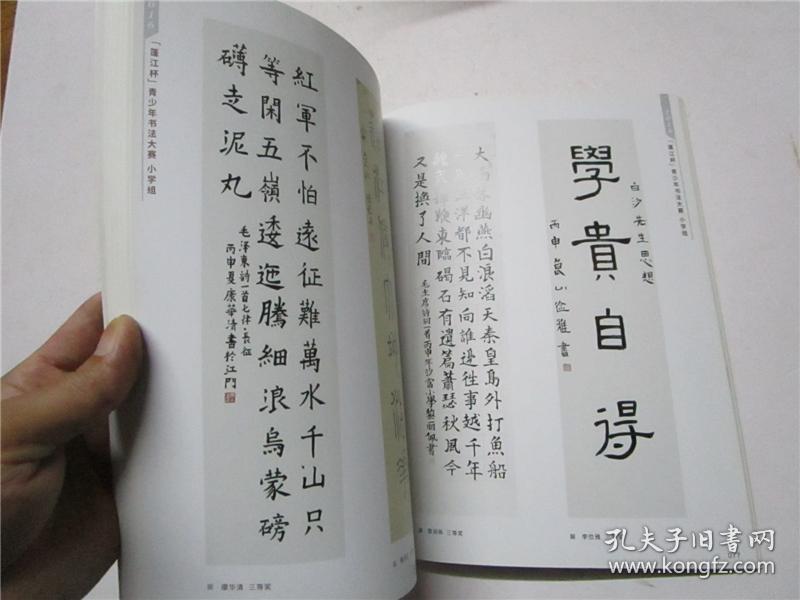 「蓬江杯」青少年书法大赛 小学组
紅軍不怕遠征難萬水千山只
等閑五嶺逶迤騰細浪烏蒙磅
礴走泥丸
毛澤東詩一首七律·長征
丙申夏康華清書於江門
三等奖
「蓬江杯」青少年书法大赛 小学组
學貴自得
白沙先生思想
丙申
書
大雨落幽燕白浪滔天秦皇島外打魚船
一片汪洋都不見知向誰邊往事越千年
魏武揮鞭東臨碣石有遺篇蕭瑟秋風今
又是換了人間
三等奖
孔夫子旧书网
www.kongfz.com